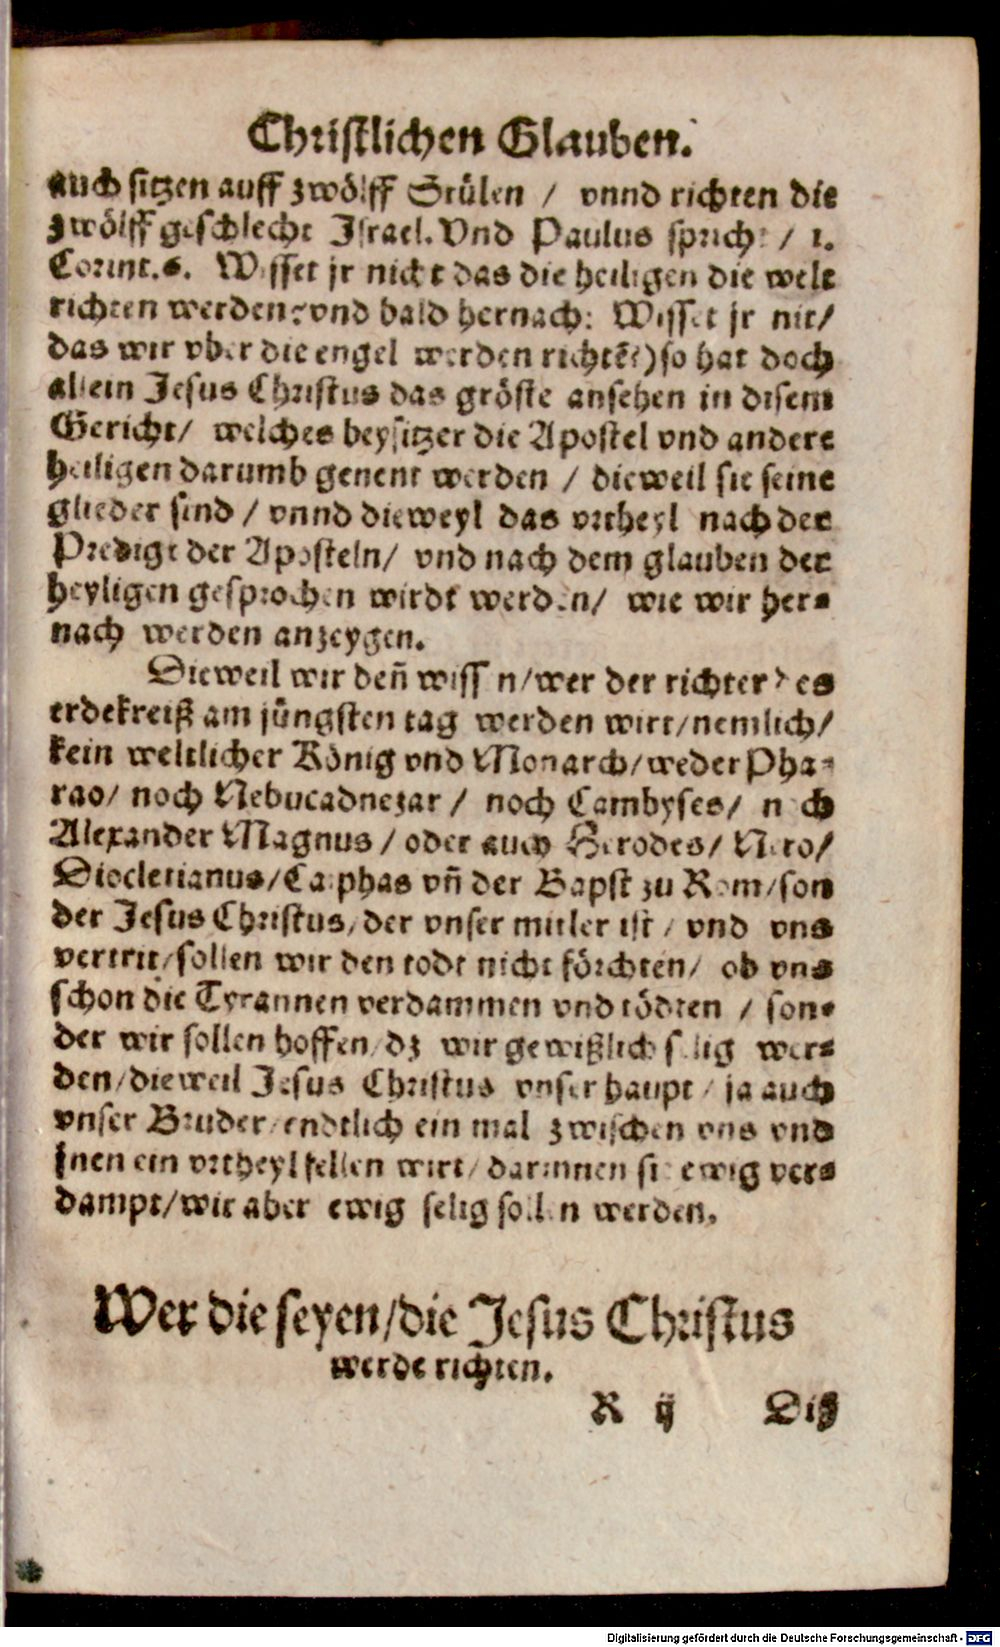 Christlichen Glauben.
auch sitzen auff zwölff Stülen / vnnd richten die
zwölff geschlecht Israel. Vnd Paulus spricht / 1.
Corint. 6. Wisset jr nicht das die heiligen die welt
richten werden? vnd bald hernach: Wisset jr nit/
das wir vber die engel werden richtẽ?) so hat doch
allein Jesus Christus das gröste ansehen in disem
Gericht/ welches beysitzer die Apostel vnd andere
heiligen darumb genent werden / dieweil sie seine
glieder sind / vnnd dieweyl das vrtheyl nach der
Predigt der Aposteln/ vnd nach dem glauben der
heyligen gesprochen wirdt werden/ wie wir her-
nach werden anzeygen.
Dieweil wir deñ wissen/wer der richter des
erdekreiß am jüngsten tag werden wirt/nemlich/
kein weltlicher König vnd Monarch/weder Pha-
rao/ noch Nebucadnezar / noch Cambyses/ noch
Alexander Magnus / oder auch Herodes/ Nero/
Diocletianus/Caiphas vñ der Bapst zu Rom/son
der Jesus Christus/der vnser mitler ist / vnd vns
vertrit/sollen wir den todt nicht förchten/ ob vns
schon die Tyrannen verdammen vnd tödten / son-
der wir sollen hoffen/dz wir gewißlich selig wer-
den/dieweil Jesus Christus vnser haupt / ja auch
vnser Bruder/endtlich ein mal zwischen vns vnd
jnen ein vrtheyl fellen wirt/darinnen sie ewig ver-
dampt/wir aber ewig selig sollen werden.
Wer die seyen/die Jesus Christus
werde richten.
R ij Diß
Digitalisierung gefördert durch die Deutsche Forschungsgemeinschaft - DFG